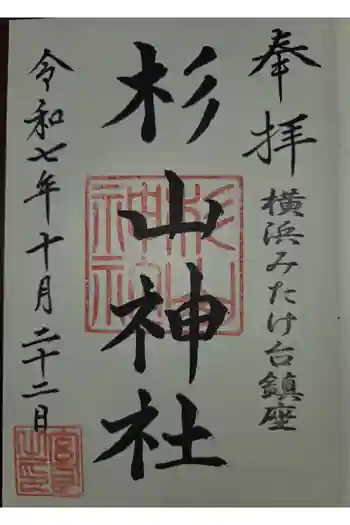 奉拝
横浜みたけ台鎮座
杉山神社
令和七年十月二十二日
杉山神社
宮司之印